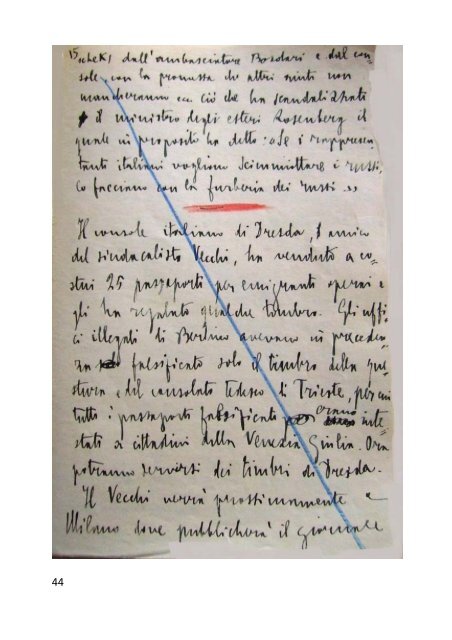 15 checks dall'ambasciatore Bordari e dal con=
sole, con la promessa che altri aiuti non
mancheranno ecc. ciò che ha scandalizzato
il ministro degli esteri Rosenberg il
quale in proposito ha detto: «Se i rappresen=
tanti italiani vogliono scimmiottare i russi,
lo facciano con la furberia dei russi.»
Il console italiano di Dresda, amico
del sindacalista Vecchi, ha venduto a co=
stui 25 passaporti per emigranti operai e
gli ha regalato qualche timbro. Gli uffi=
ci illegali di Berlino avevano in preceden
za falsificato solo il timbro della que=
stura e del consolato tedesco di Trieste, per cui
tutti i passaporti falsificati erano inte=
stati a cittadini della Venezia Giulia. Ora
potranno servirsi dei timbri di Dresda.
Il Vecchi verrà prossimamente a
Milano dove pubblicherà il giornale
44